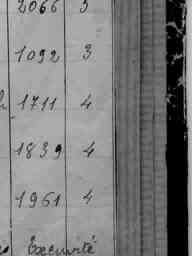 2066 3
1092 3
1711 4
1839 4
1961 4